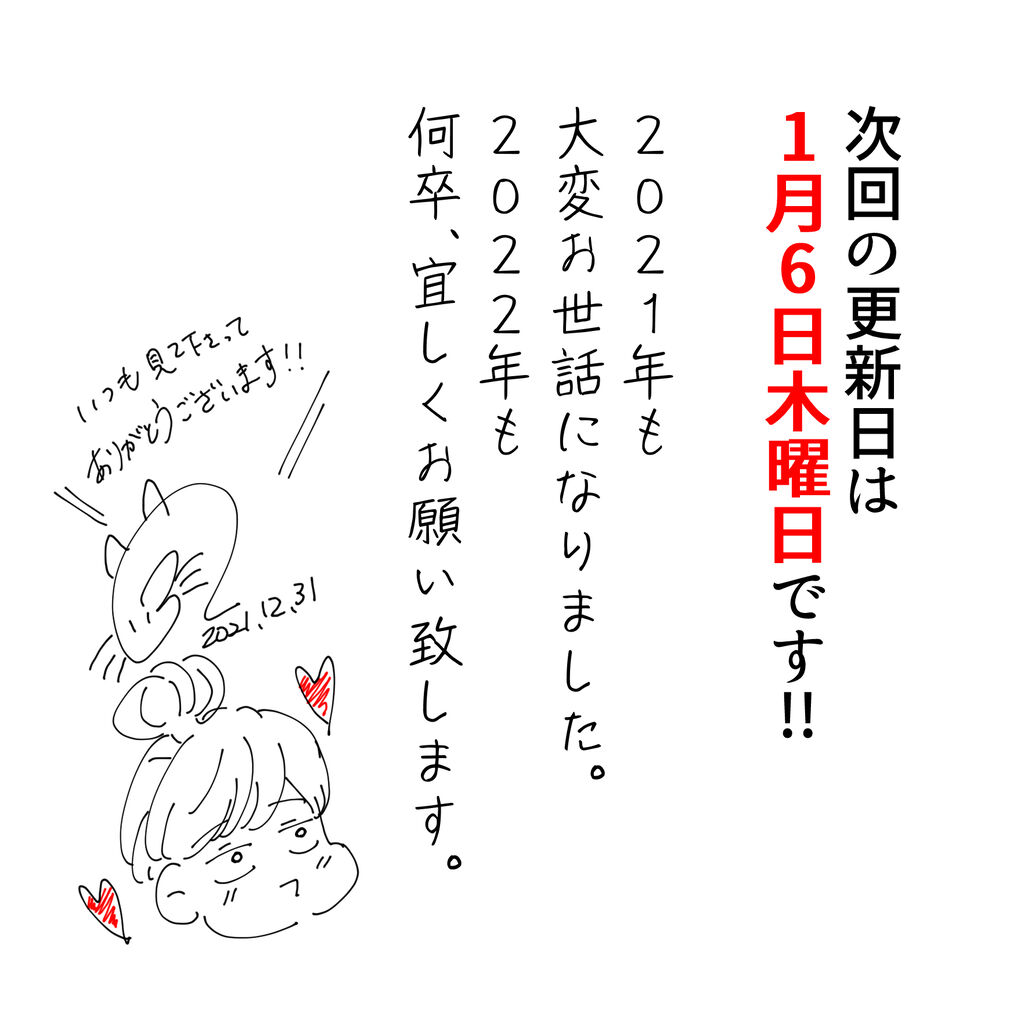 次回の更新日は
1月6日木曜日です!!
2021年も
大変お世話になりました。
2022年も
何卒、宜しくお願い致します。
いつも見て下さって
ありがとうございます!!
2021.12.31